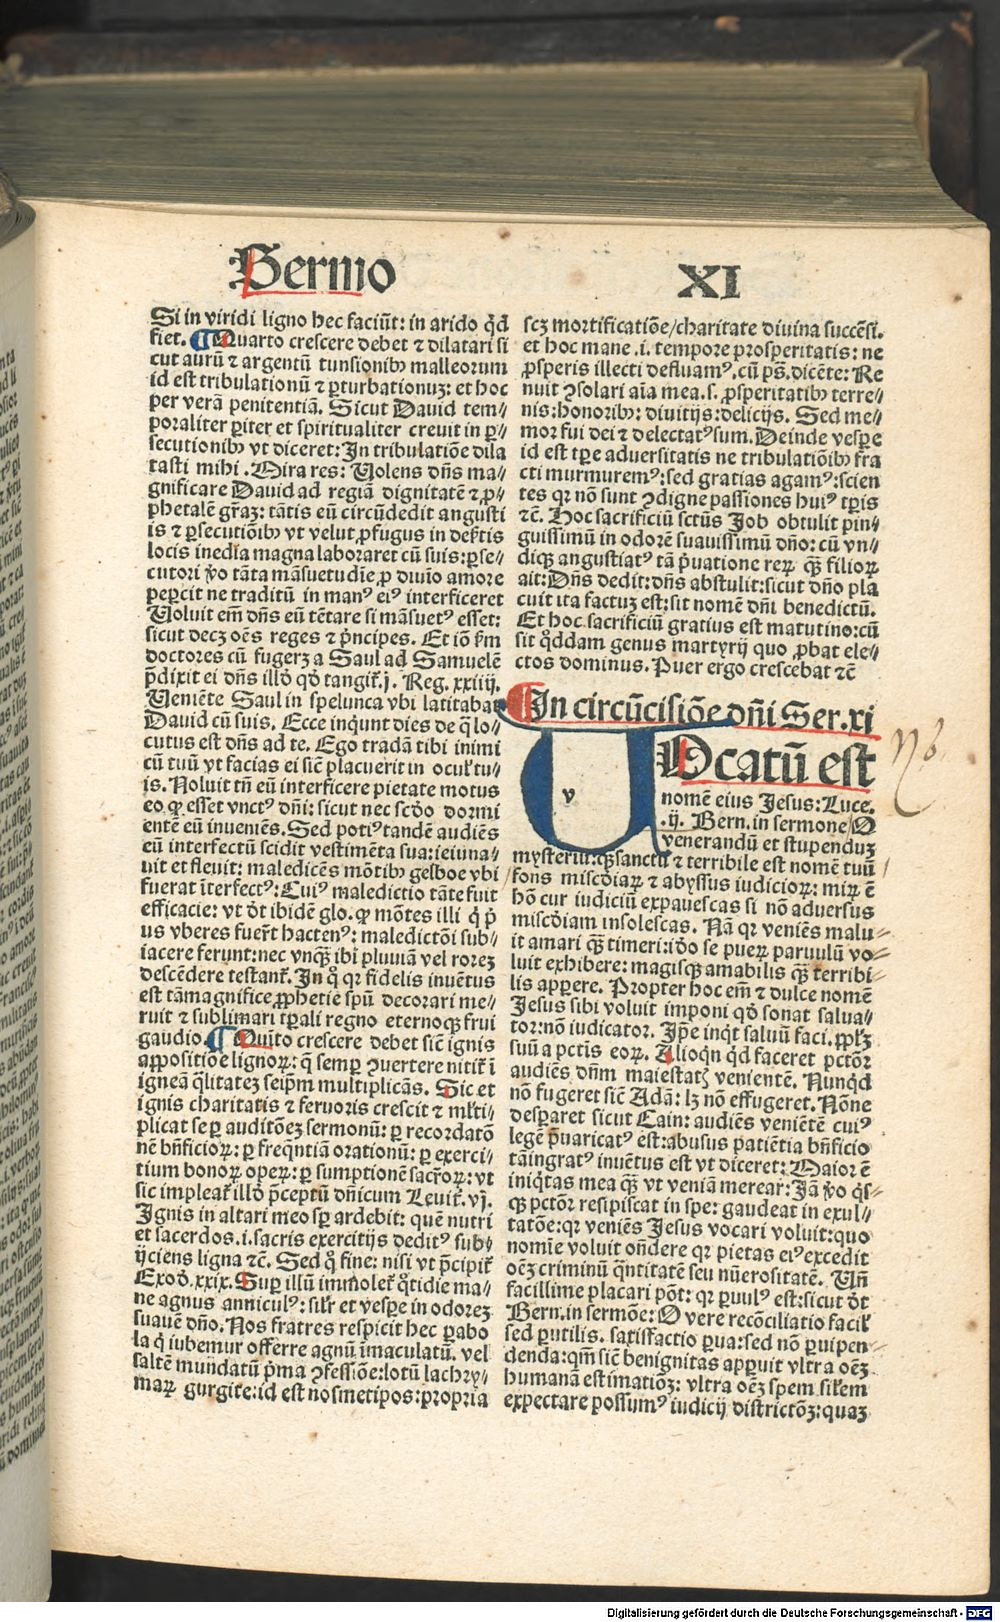 Sermo
XI
Si in viridi ligno hec faciūt: in arido qd
fiet. ¶ Quarto crescere debet ⁊ dilatari si
cut aurū ⁊ argentū tunsionibꝰ malleorum
id est tribulationū ⁊ ꝑturbationuz: et hoc
per verā penitentiā. Sicut David tem⸗
poraliter ꝑiter et spiritualiter crevit in ꝑ⸗
secutionibꝰ vt diceret: In tribulatiōe dila
tasti mihi. Mira res: Uolens dn̄s ma⸗
gnificare David ad regiā dignitatē ⁊ ꝓ⸗
phetalē grāz: tātis eū circūdedit angusti
is ⁊ ꝑsecutiōibꝰ vt velut ꝓfugus in deẜtis
locis inedia magna laboraret cū suis: ꝑse⸗
cutori ꝟo tāta māsuetudīe ꝓ diuīo amore
peꝑcit ne traditū in manꝰ eiꝰ interficeret
Uoluit em̄ dn̄s eū tētare si māsuetꝰ esset:
sicut decꝫ oēs reges ⁊ p̄ncipes. Et iō ẜm
doctores cū fugerꝫ a Saul ad Samuelē
p̄dixit ei dn̄s illd̓ qd̓ tangiť. j. Reg. xxiiij.
Ueniēte Saul in spelunca vbi latitabat
David cū suis. Ecce inq̇unt dies de q̄ lo⸗
cutus est dn̄s ad te. Ego tradā tibi inimi
cū tuū vt facias ei sic̄ placuerit in oculꝭ tu⸗
is. Noluit tn̄ eū interficere pietate motus
eo ꝙ esset vnctꝰ dn̄i: sicut nec scd̓o dormi
entē eū inveniēs. Sed potiꝰ tandē audiēs
eū interfectū scidit vestimēta sua: ieiuna⸗
uit et flevit: maledicēs mōtibꝰ gelboe vbi
fuerat īterfectꝰ: Cuiꝰ maledictio tāte fuit
efficacie: vt d̓t ibidē glo. ꝙ mōtes illi q̇ p̓
us vberes fuerūt hactenꝰ: maledictōi sub⸗
iacere ferunt: nec vnꝙ̄ ibi pluuiā vel rorez
descēdere testanť. In q̊ qꝛ fidelis inuētus
est tā magnifice ꝓphetie spū decorari me⸗
ruit ⁊ sublimari tꝑali regno eternoqꝫ frui
gaudio. ¶ Quīto crescere debet sic̄ ignis
appositiōe lignoꝝ: q̄ semꝑ ꝯvertere nitiť ī
igneā q̄litatez seip̄m multiplicās. Sic et
ignis charitatis ⁊ fervoris crescit ⁊ ml̄ti⸗
plicat se ꝑ auditōez sermonū: ꝑ recordatō
nē bn̄ficioꝝ: ꝑ freq̄ntiā orationū: ꝑ exerci⸗
tium bonoꝝ opeꝝ: ꝑ sumptionē sacroꝝ: vt
sic impleať illd̓ p̄ceptū dn̄icum Leuiť. vj.
Ignis in altari meo sꝑ ardebit: quē nutri
et sacerdos .i. sacris exercitijs deditꝰ subi
ijciens ligna ⁊c̄. Sed q̊ fine: nisi vt p̄cipiť
Exod̓. xxix. Suꝑ illū immoleť q̊tidie ma⸗
ne agnus anniculꝰ: sil̄r et vespe in odorez
suauē dn̄o. Nos fratres respicit hec ꝑabo
la q̇ iubemur offerre agnū īmaculatū. vel
saltē mūdatū p̓ma ꝯfessiōe: lotū lachry⸗
maꝝ gurgite: id est nosmetipos: ꝓpria
scꝫ mortificatiōe/ charitate diuina succēsi.
et hoc mane .i. tempore prosperitatis: ne
ꝓsperis illecti defluamꝰ, cū ps̄. dicēte: Re
nuit ꝯsolari aīa mea. s. ꝓsperitatibꝰ terre⸗
nis: honoribꝰ: diuitijs: delicijs. Sed me⸗
mor fui dei ⁊ delectatꝰ sum. Deinde vespe
id est tꝑe aduersitatis ne tribulatiōibꝰ fra
cti murmuremꝰ: sed gratias agamꝰ: scien
tes qꝛ nō sunt ꝯdigne passiones huiꝰ tꝑis
⁊c̄. Hoc sacrificiū sctūs Job obtulit pin⸗
guissimū in odorē suauissimū dn̄o: cū vn⸗
diqꝫ angustiatꝰ tā p̓uatione reꝝ ꝙ̄ filioꝝ
ait: Dn̄s dedit: dn̄s abstulit: sicut dn̄o pla
cuit ita factuꝫ est: sit nomē dn̄i benedictū.
Et hoc sacrificiū gratius est matutino: cū
sit q̊ddam genus martyrij quo ꝓbat ele⸗
ctos dominus. Puer ergo crescebat ⁊c̄
¶ In circūcisiōe dn̄i Ser. xi
v
UOcatū est
nomē eius Jesus: Luce.
.ij. Bern. in sermone O
venerandū et stupenduꝫ
mysteriū: ꝙ̄ sanctū ⁊ terribile est nomē tuū
fons miscd̓iaꝝ ⁊ abyssus iudicioꝝ: miꝝ ē
hō cur iudiciū expauescas si nō adversus
miscd̓iam insolescas. Nā qꝛ veniēs malu⸗
it amari ꝙ̄ timeri: id̓o se pueꝝ paruulū vo⸗
luit exhibere: magisqꝫ amabilis ꝙ̄ terribi⸗
lis apꝑere. Propter hoc em̄ ⁊ dulce nomē
Jesus sibi voluit imponi qd̓ sonat salua⸗
tor: nō iudicator. Ip̄e inq̇t saluū faci. pplꝫ
suū a pctīs eoꝝ. Alioqn̄ qd faceret pctōr
audiēs dn̄m maiestatꝭ venientē. Nunqd
nō fugeret sic̄ Adā: lꝫ nō effugeret. Nōne
desꝑaret sicut Cain: audiēs veniētē cuiꝰ
legē p̄uaricatꝰ est: abusus patiētia bn̄ficio
tā ingratꝰ inuētus est vt diceret: Maior ē
iniq̇tas mea ꝙ̄ vt veniā merear: Jā ꝟo q̇s⸗
ꝙ̄ pctōr resipiscat in spe: gaudeat in exul⸗
tatōe: qꝛ veniēs Jesus vocari voluit: quo
nomīe voluit on̄dere qꝛ pietas eiꝰ excedit
oēꝫ criminū q̄ntitatē seu nūerositatē. Un̄
facillime placari pōt: qꝛ ꝑuulꝰ est: sicut d̓t
Bern. in sermōe: O vere recōciliatio facil̓
sed ꝑutilis. satisfactio ꝑua: sed nō ꝑuipen⸗
denda: qm̄ sic̄ benignitas apꝑuit vltra oēꝫ
humanā estimatiōꝫ: vltra oēꝫ spem sil̓em
expectare possumꝰ iudicij districtōꝫ: quaꝫ
Nb.
Digitalisierung gefördert durch die Deutsche Forschungsgemeinschaft - DFG